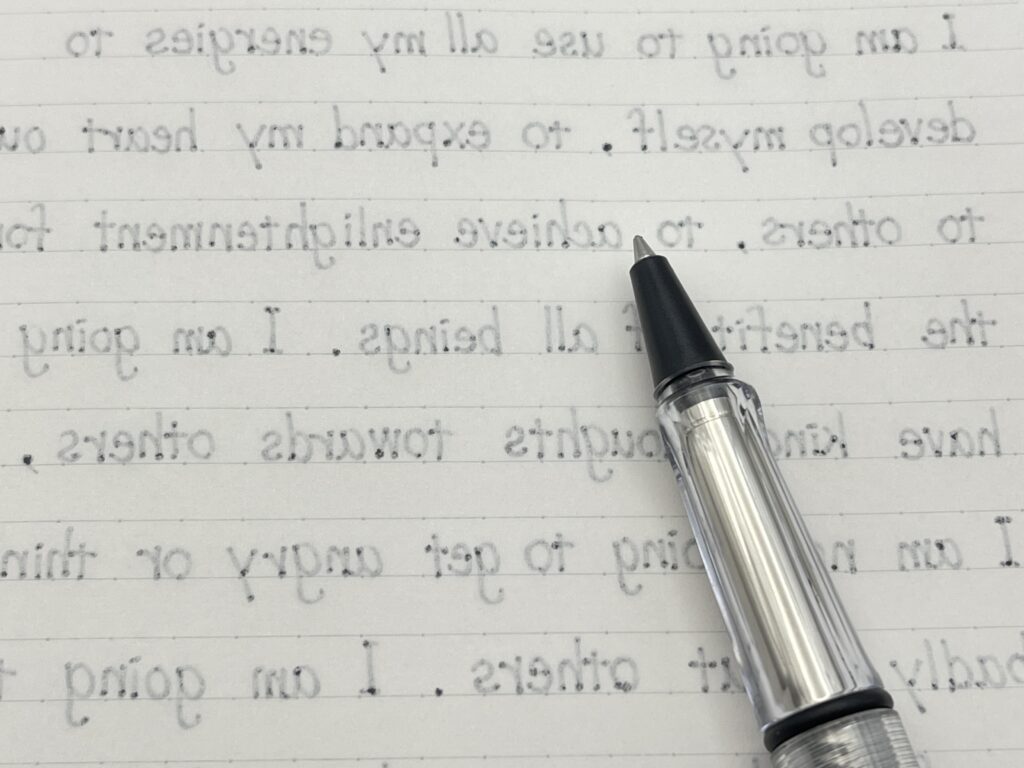 I am going to use all my energies to
develop myself. to expand my heart ou
to others. to achieve enlightenment for
the benefit of all beings. I am going
have kind thoughts towards others,
I am not going to get angry or thin
badly about others. I am going t